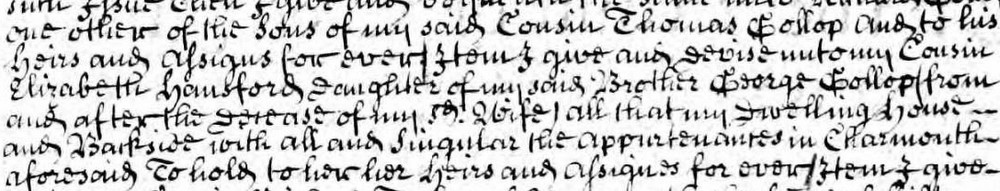 such Issue Then I give and
one other of the Sons of my said Cousin Thomas Gollop and to his
Heirs and Assigns for ever Item I give and devise unto my Cousin
Elizabeth Hansford daughter of my said Brother George Gollop (from
and after the decease of my sd. Wife) all that my dwelling House
and Backside with all and Singular the appurtenances in Charmouth
aforesaid To hold to her her Heirs and Assignes for ever Item I give